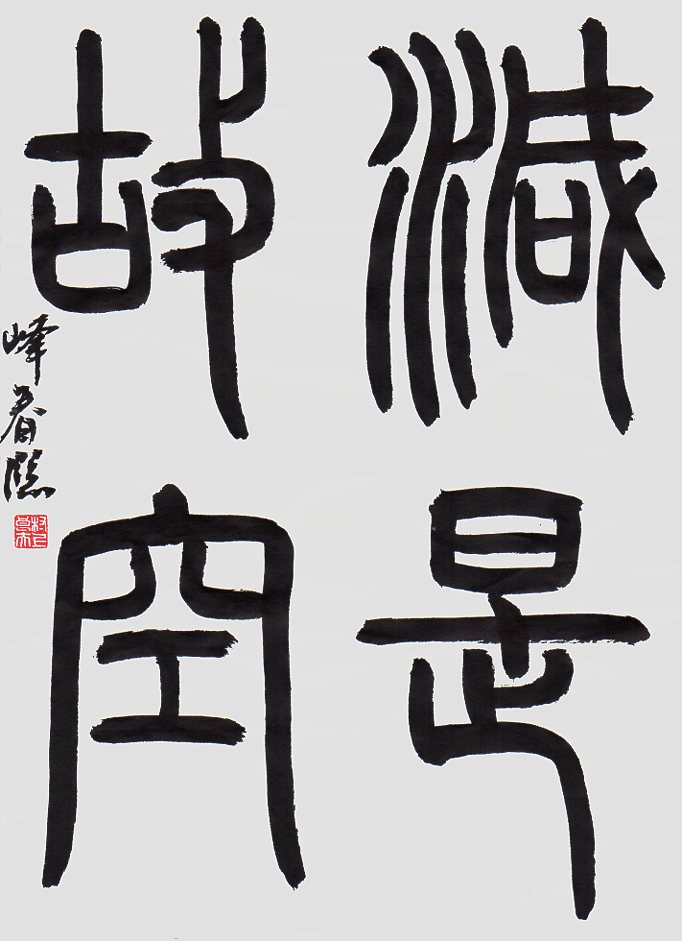 減是
故空
峰春臨